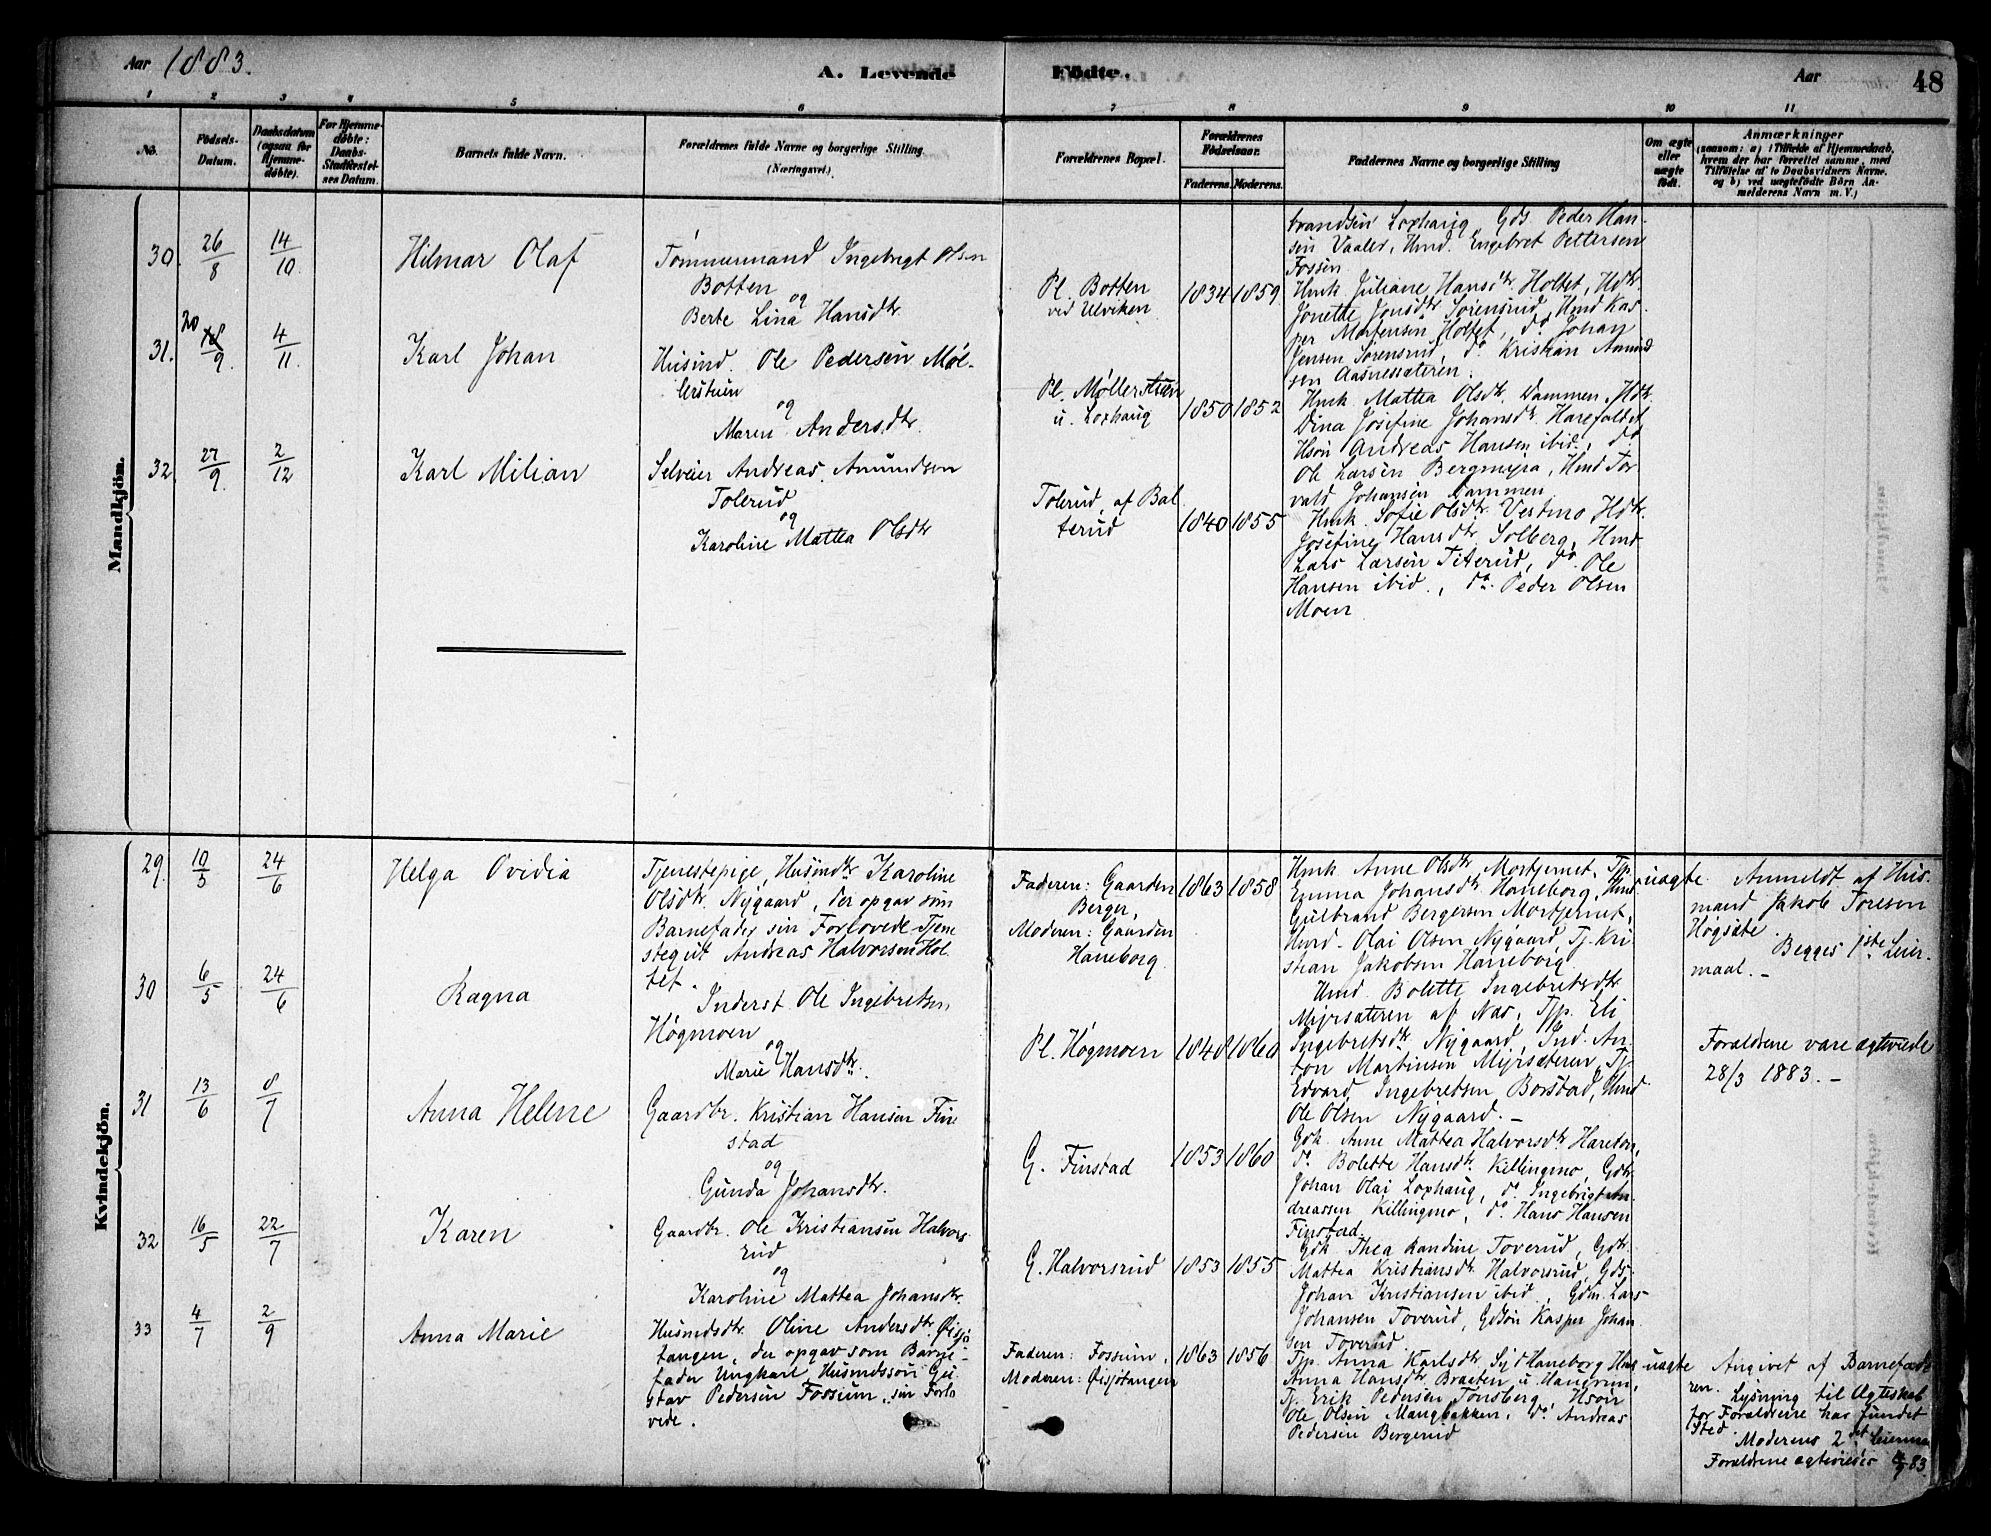 Aar 1883.
A. Levende Födte.
Aar
48
1 2 3 4 5 6 7 8 9 10 11
No.
Födsels-
Datum.
Daabsdatum
(ogsaa for
Hjemme-
døbte).
For Hjemme-
døbte:
Daabs-
Stadfæstel-
ses Datum.
Barnets fulde Navn.
Forældrenes fulde Navne og borgerlige Stilling
(Næringsvei).
Forældrenes Bopæl.
Forældrenes
Födselsaar.
Faderens. Moderens.
Faddernes Navne og borgerlige Stilling
Om ægte
eller
uægte
født.
Anmærkninger
(saasom: a) i Tilfælde af Hjemmedaab,
hvem der har forrettet samme, med
Tilføielse af to Daabsvidners Navne.
og b) ved uægtefødte Børn An-
melderens Navn m. V.)
Mandkjön.
brandsen Loxhaug Gds Peder Han-
sen Vaaler, Hmd. Engebret Pettersen
Fossen
30. 26/8 14/10.
Hilmar Olaf
Tømmermand Ingebrigt Olsen
Botten
og
Berte Lina Hansdtr
Pl. Botten
ved Ulviken
1834 1859
Hmk. Juliane Hansdtr Holtet, Hdtr.
Jonette Jonsdtr Sørensrud, Hmd Kas-
per Mortensen Holtet, do Johan
Jensen Sørensrud, do. Kristian Amund
sen Aasnessæteren.
31. 20 18/9. 4/11.
Karl Johan
Husmd. Ole Pedersen Møl-
lerstuen
og
Maren Andersdtr.
Pl. Møllerstuen
u. Loxhaug
1850 1852
Hmk. Mattea Olsdtr. Dammen, Hdtr.
Dina Josefine Johansdtr. Harefaldet
Hsøn Andreas Hansen ibid., do
Ole Larsen Bergmyra, Hmd Tor
vald Johansen Dammen.
32. 27/9. 2/12
Karl Milian
Selveier Andreas Amundsen
Tolerud
og
Karoline Mattea Olsdtr
Tolerud, af Bal
terud
1840 1855
Hmk. Sofie Olsdtr. Vestmo, Hdtr.
Josefine Hansdtr. Solberg, Hmd
Lars Larsen Titerud, do. Ole
Hansen ibid., do. Peder Olsen
Moen
Kvindekjön.
29. 10/5 24/6
Helga Ovidia
Tjenestepige, Husmdtr Karoline
Olsdtr. Nygaard, der opgav som
Barnefader sin Forlovede Tjene
stegut Andreas Halvorsen Hol-
tet.
Faderen: Gaarden
Berger,
Moderen: Gaarden
Haneborg.
1863 1858
Hmk Anne Olsdtr Mortjernet, Tjp.
Emma Johansdtr. Haneborg, Hmd
Gulbrand Bergersen Mortjernet,
Hmd. Olai Olsen Nygaard, Tj. Kri
stian Jakobsen Haneborg
uægte
Anmeldt af Hus-
mand Jakob Toresen
Høgsæte.
Begges 1ste Leier-
maal. –
30 6/5 24/6
Ragna
Inderst Ole Ingebretsen,
Høgmoen
og
Marie Hansdtr.
Pl. Høgmoen
1848 1860
Hmd. Bolette Ingebretsdtr
Myrsæteren af Næs, Tjp. Eli
Ingebretsdtr. Nygaard, Ind. An-
ton Martinsen Myrsæteren, Tj.
Edvard Ingebretsen Borstad, Hmd
Ole Olsen Nygaard. –
Forældrene vare ægteviede
28/3 1883. –
31 13/6 8/7
Anna Helene
Gaardbr. Kristian Hansen Fin
stad
og
Gunda Johansdtr.
G. Finstad
1853 1860
Gdk Anne Mattea Halvorsdtr Hareton,
do. Bolette Hansdtr. Killingmo, Gdtr.
Johan Olai Loxhaug, do. Ingebrigt An-
dreassen Killingmo, do. Hans Hansen
Finstad.
32 16/5 22/7
Karen
Gaardbr. Ole Kristiansen Halvors
rud
og
Karoline Mattea Johansdtr.
G. Halvorsrud
1853 1855
Gdk Thea Randine Toverud, Gdtr.
Mattea Kristiansdtr. Halvorsrud, Gds.
Johan Kristiansen ibid, Gdm. Lars
Johansen Toverud, Gdsøn Kasper Johan
sen Toverud
33 4/7 2/9
Anna Marie
Husmdsdtr. Oline Andersdtr. Øisjø
tangen, der opgav som Barne-
fader Ungkarl, Husmdssøn Gu
stav Pedersen Fossum, sin Forlo
vede.
Faderen: Fossum.
Moderen: Øisjøtangen
1863 1856
Tjp. Anna Karlsdtr. Syd Haneborg
Anna Hansdtr. Braaten u. Hangrum,
Tj. Erik Pedersen Tonsberg Hsøn
Ole Olsen Mangbakken, do. Andreas
Pedersen Bergerud
uægte
Angivet af Barnefade
ren. Lysning til Ægteskab
for Forældrene har fundet
Sted.
Moderens 2det Leierma
Forældrene ægteviedes 83